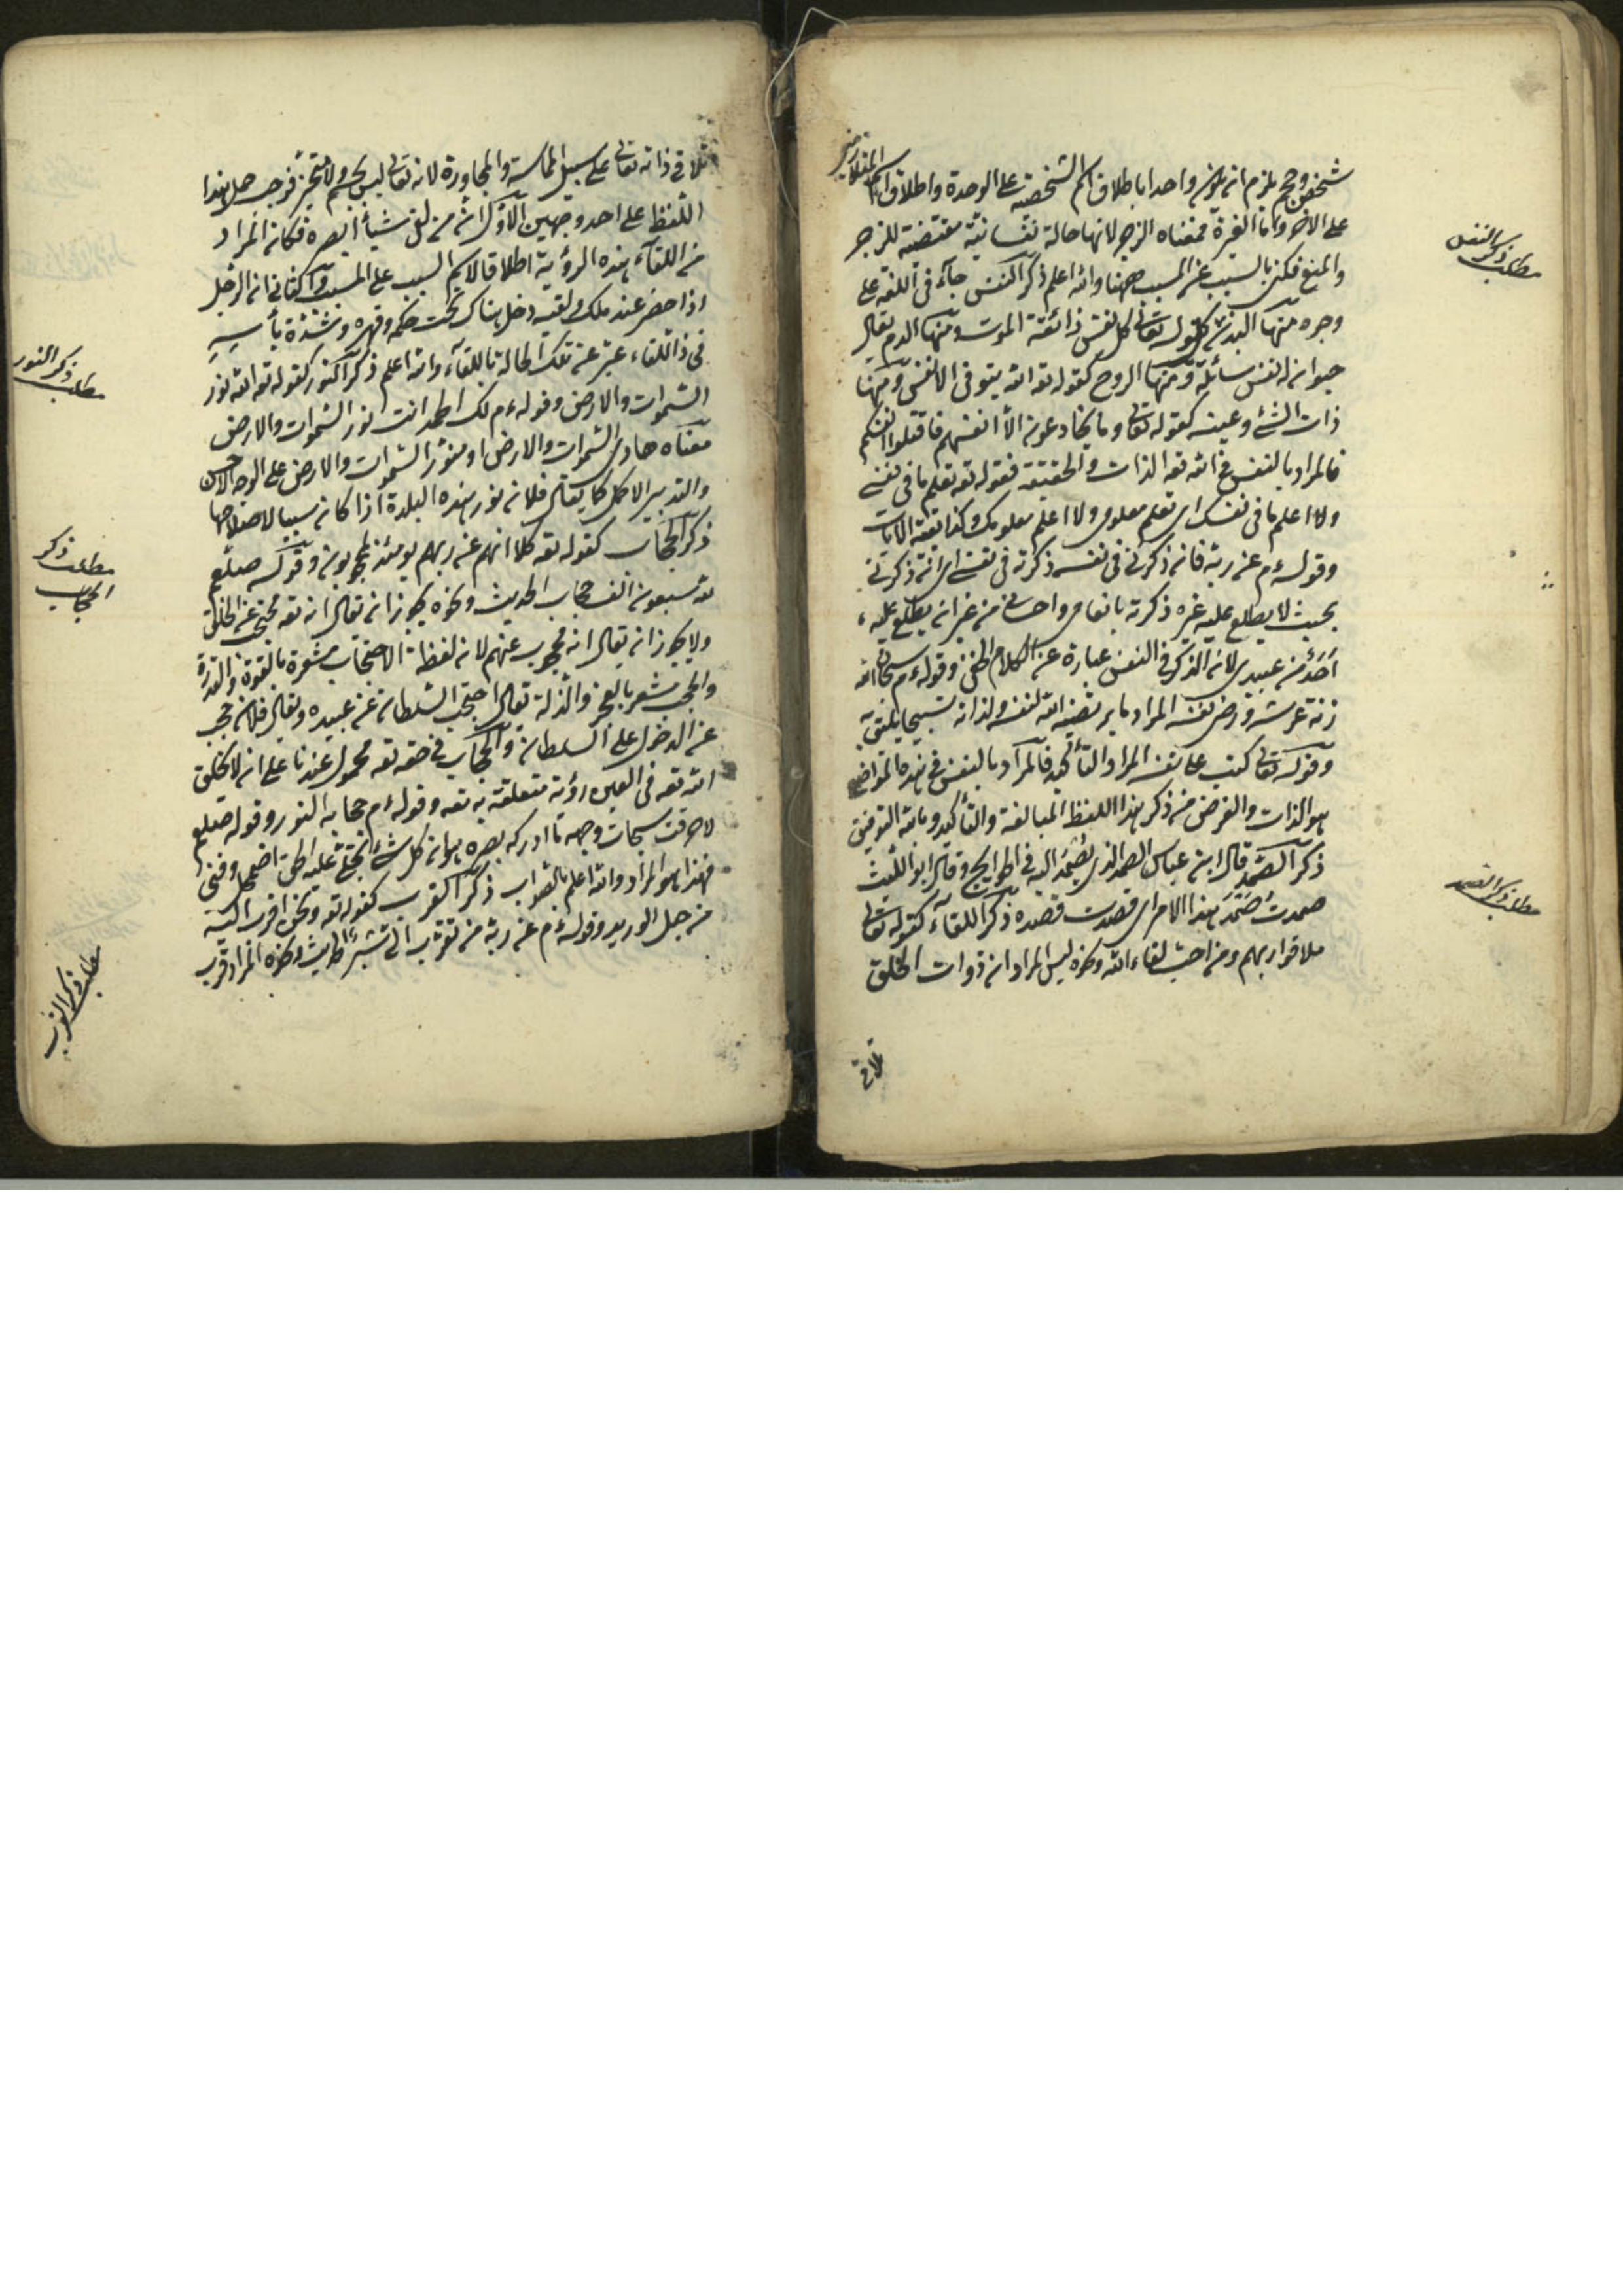 شخص وحجم يلزم انه يكون واحدا باطلاق اسم الشخصية على الوحدة واطلاق اسم المتلازمين
على الاخر واما الغيرة فمعناه الزجر لانها حالة نفسانية مقتضية للزجر
والمنع فكنى بالسبب عن المسبب ههنا والله اعلم ذكر النفس جاء فى اللغة على
وجوه منها البدن كقوله تعالى كل نفس ذائقة الموت ومنها الدم يقال
حيوان له نفس سائلة ومنها الروح كقوله تعه الله يتوفى الانفس ومنها
ذات الشئ وعينه كقوله تعالى وما يخادعون الا انفسهم فاقتلوا انفسكم
فالمراد بالنفس فى الله تعه الذات والحقيقة فقوله تعه تعلم ما فى نفسى
ولا اعلم ما فى نفسك اى تعلم معلومى ولا اعلم معلومك وكذا بقية الايات
وقوله ءم عن ربه فان ذكرنى فى نفسه ذكرته فى نفسى اى ان ذكرنى
بحيث لا يطلع عليه غيره ذكرته بانعامى واحسانى من غير ان يطلع عليه
احد من عبيدى لان الذكر فى النفس عبارة عن الكلام الخفى وقوله ءم سبحان الله
زنة عرشه ورضى نفسه المراد ما يرتضيه الله لنفسه ولذاته تسبيحا يليق به
وقوله تعالى كتب على نفسه المراد التأكيد فالمراد بالنفس فى هذه المواضع
هو الذات والغرض من ذكر هذا اللفظ المبالغة والتأكيد وبالله التوفيق
ذكر الصمد قال ابن عباس الصمد الذى يصمد اليه فى الحوايج وقال ابو الليث
صمدت صمد هذا الامر اى قصدت قصده ذكر اللقاء كقوله تعالى
ملاقوا ربهم ومن احب لقاء الله ونحوه ليس المراد ان ذوات الخلق
تلاقى
مطلب ذكر النفس
مطلب ذكر الصمد
تلاقى ذاته تعالى على سبيل المماسة والمجاورة لانه تعالى ليس بجسم ولا متحيز فوجب حمل هذا
اللفظ على احد وجهين الاول انه من لقى شيأ ابصره فكان المراد
من اللقاء هذه الرؤية اطلاقا لاسم السبب على المسبب والثانى ان الرجل
اذا حضر عند ملك ولقيه دخل هناك تحت حكمه وقهره وشدة بأسه
فى ذا اللقاء عبر عن تلك الحالة باللقاء والله اعلم ذكر النور كقوله تعه الله نور
السموات والارض وقوله ءم لك الحمد انت نور السموات والارض
معناه هادى السموات والارض او منور السموات والارض على الوجه الاحسن
والتدبير الاكمل كما يقال فلان نور هذه البلدة اذا كان سببا لاصلاحها
ذكر الحجاب كقوله تعه كلا انهم عن ربهم يومئذ لمحجوبون وقوله صلعم
لله سبعون الف حجاب الحديث ونحوه يجوز ان يقال انه تعه محتجب عن الخلق
ولا يجوز ان يقال انه محجوب عنهم لان لفظة الاحتجاب مشعرة بالقوة والقدرة
والحجب مشعر بالعجز والذلة يقال احتجب السلطان عن عبيده ويقال فلان حجب
عن الدخول على السلطان والحجاب فى حقه تعه محمول عندنا على انه لا يخلق
الله تعه فى العين رؤية متعلقة به تعه وقوله ءم حجابه النور وقوله صلعم
لاحرقت سبحات وجهه ما ادركه بصره هو ان كل شئ انجلى عليه الحق اضمحل وفنى
فهذا هو المراد والله اعلم بالصواب ذكر القرب كقوله تعه ونحن اقرب اليه
من حبل الوريد وقوله ءم عن ربه من تقرب الى شبرا الحديث ونحوه المراد قرب
مطلب ذكر النور
مطلب ذكر
الحجاب
مطلب ذكر القرب